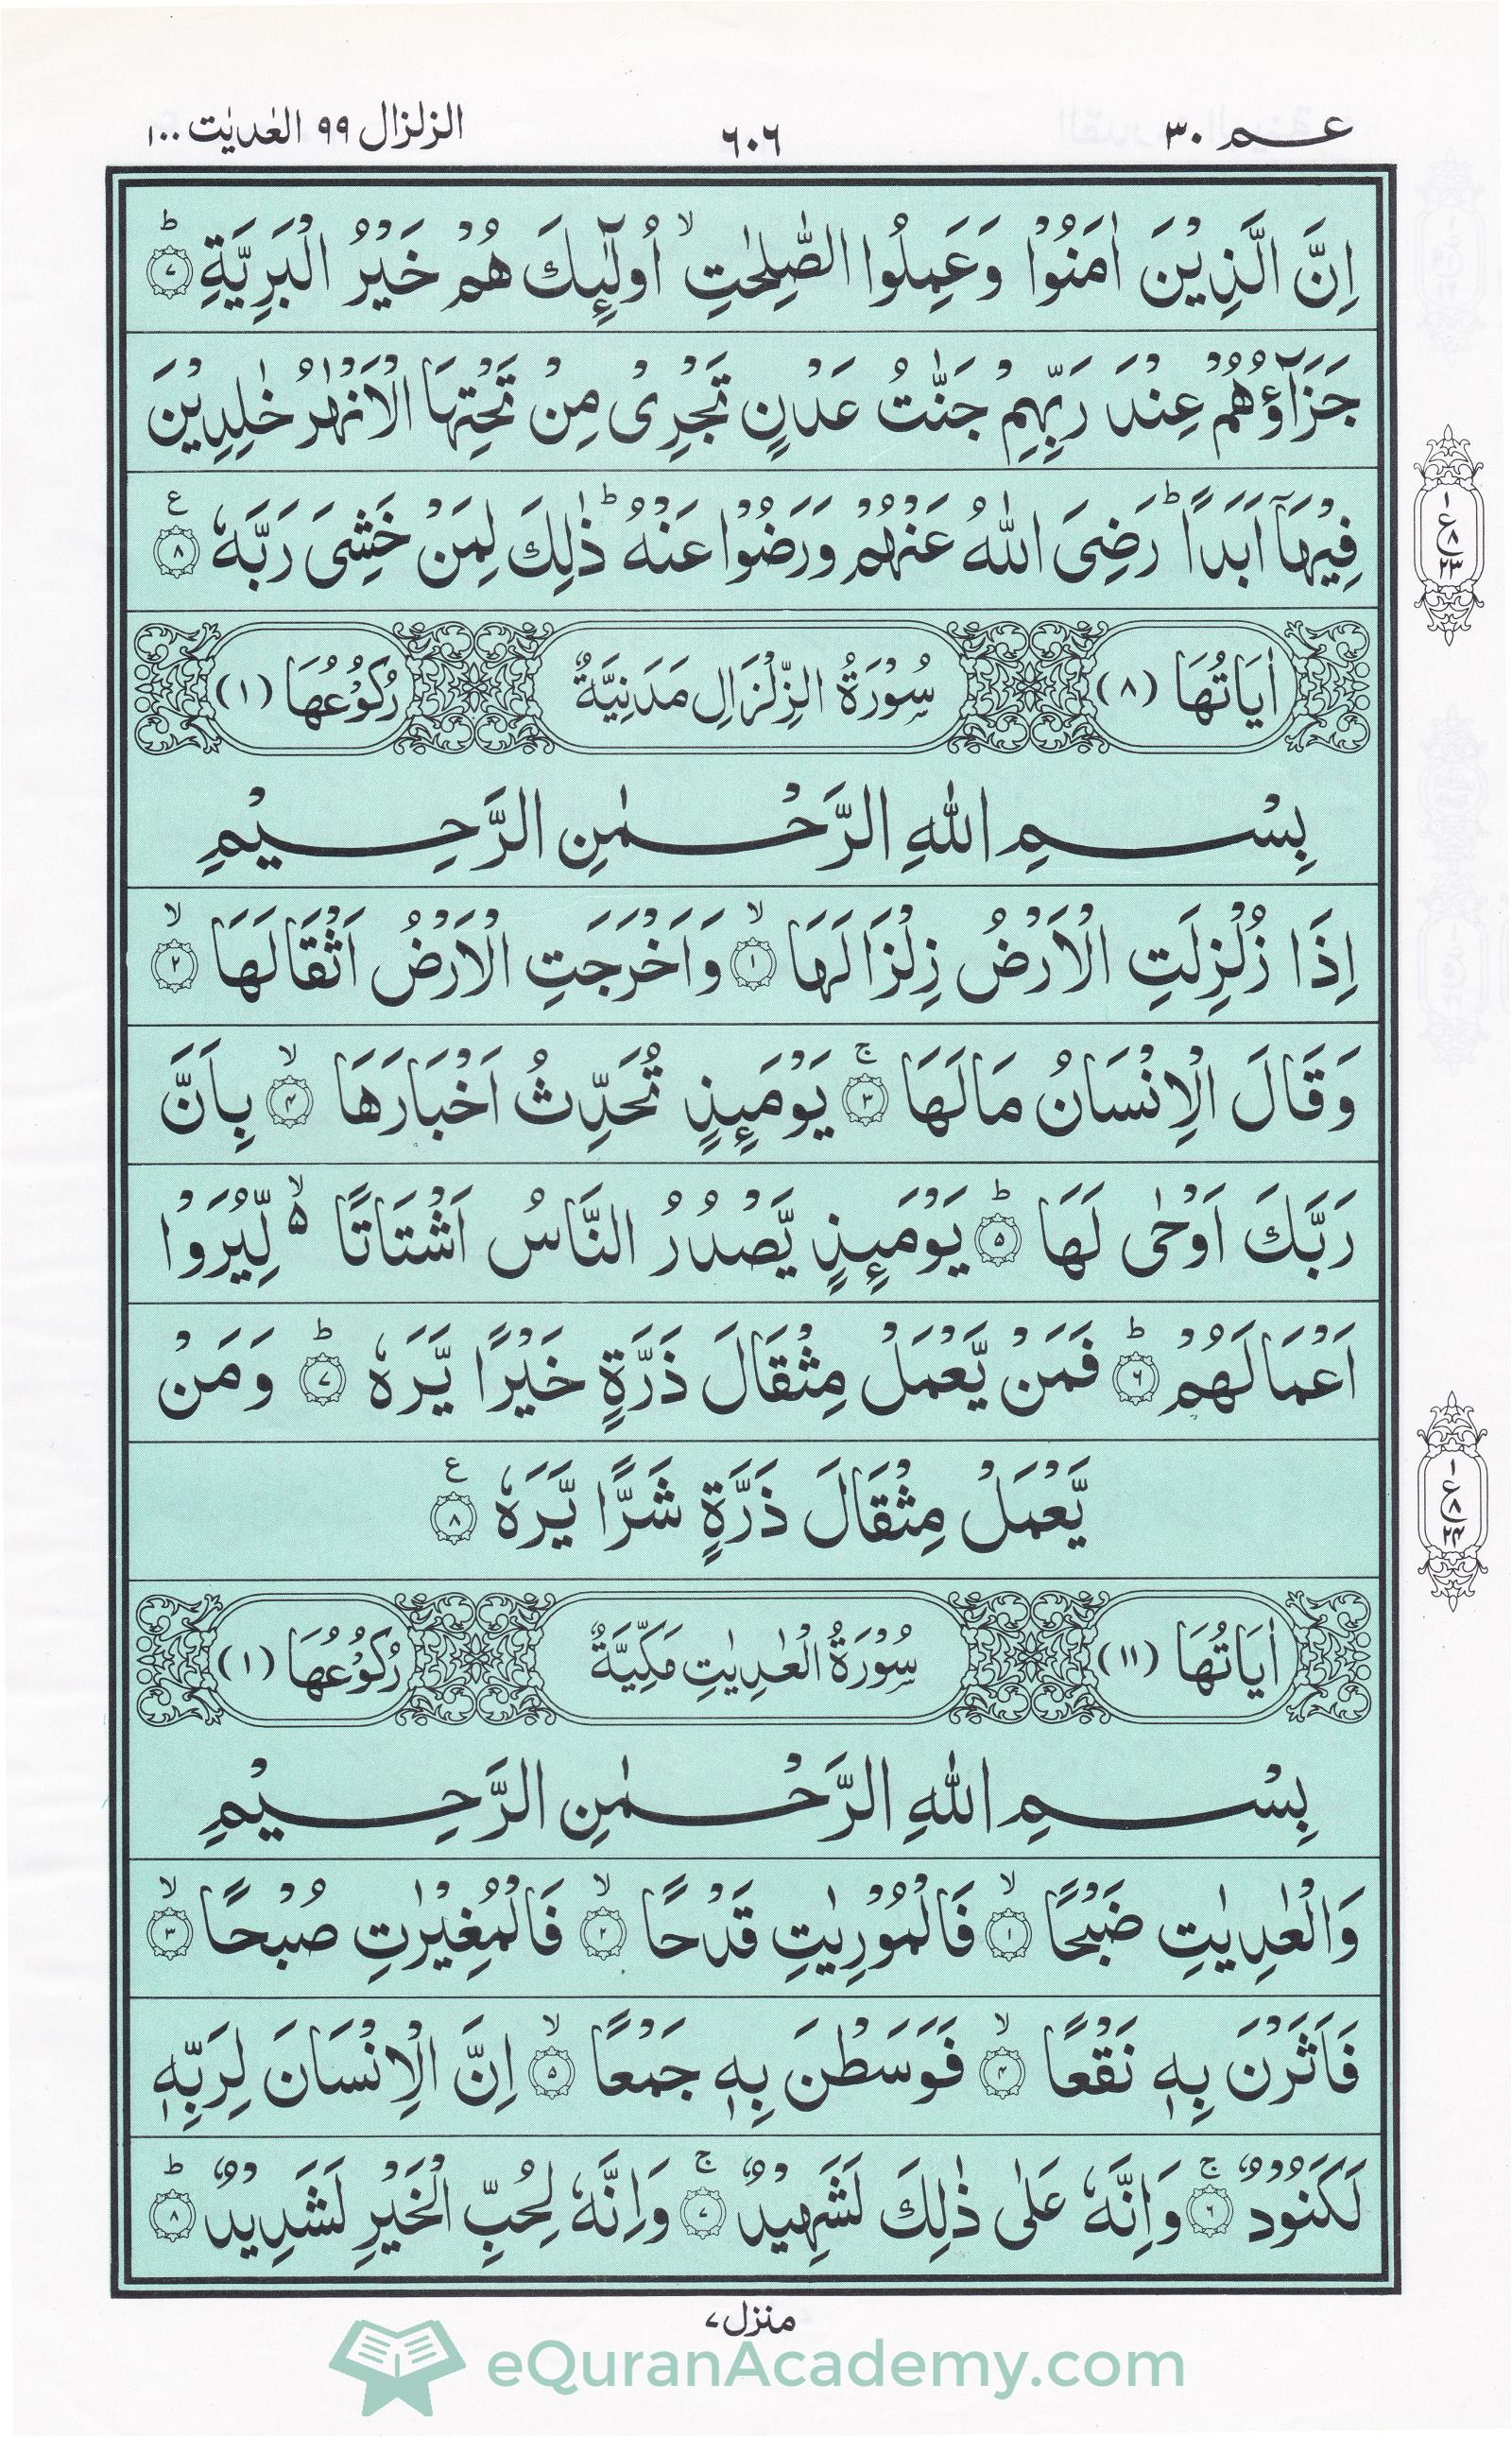 عم ٣٠
٦٠٦
الزلزال ٩٩ العٰدیٰت ١٠٠
اِنَّ الَّذِیْنَ اٰمَنُوْا وَعَمِلُوا الصّٰلِحٰتِ ۙ اُولٰٓئِكَ هُمْ خَیْرُ الْبَرِیَّةِ ؕ﴿۷﴾
جَزَآؤُهُمْ عِنْدَ رَبِّهِمْ جَنّٰتُ عَدْنٍ تَجْرِیْ مِنْ تَحْتِهَا الْاَنْهٰرُ خٰلِدِیْنَ
فِیْهَاۤ اَبَدًا ؕ رَضِیَ اللّٰهُ عَنْهُمْ وَرَضُوْا عَنْهُ ؕ ذٰلِكَ لِمَنْ خَشِیَ رَبَّهٗ ﴿۸﴾ ع
١ ع ٨ ٢٣
اٰیَاتُهَا (٨) سُوْرَةُ الزِّلْزَالِ مَدَنِیَّةٌ رُكُوْعُهَا (١)
بِسْمِ اللّٰهِ الرَّحْمٰنِ الرَّحِیْمِ
اِذَا زُلْزِلَتِ الْاَرْضُ زِلْزَالَهَا ۙ﴿۱﴾ وَاَخْرَجَتِ الْاَرْضُ اَثْقَالَهَا ۙ﴿۲﴾
وَقَالَ الْاِنْسَانُ مَالَهَا ۚ﴿۳﴾ یَوْمَىِٕذٍ تُحَدِّثُ اَخْبَارَهَا ۙ﴿۴﴾ بِاَنَّ
رَبَّكَ اَوْحٰی لَهَا ؕ﴿۵﴾ یَوْمَىِٕذٍ یَّصْدُرُ النَّاسُ اَشْتَاتًا ۵ۙ لِّیُرَوْا
اَعْمَالَهُمْ ؕ﴿۶﴾ فَمَنْ یَّعْمَلْ مِثْقَالَ ذَرَّةٍ خَیْرًا یَّرَهٗ ؕ﴿۷﴾ وَمَنْ
یَّعْمَلْ مِثْقَالَ ذَرَّةٍ شَرًّا یَّرَهٗ ﴿۸﴾ ع
١ ع ٨ ٢۴
اٰیَاتُهَا (١١) سُوْرَةُ الْعٰدِیٰتِ مَكِّیَّةٌ رُكُوْعُهَا (١)
بِسْمِ اللّٰهِ الرَّحْمٰنِ الرَّحِیْمِ
وَالْعٰدِیٰتِ ضَبْحًا ۙ﴿۱﴾ فَالْمُوْرِیٰتِ قَدْحًا ۙ﴿۲﴾ فَالْمُغِیْرٰتِ صُبْحًا ۙ﴿۳﴾
فَاَثَرْنَ بِهٖ نَقْعًا ۙ﴿۴﴾ فَوَسَطْنَ بِهٖ جَمْعًا ۙ﴿۵﴾ اِنَّ الْاِنْسَانَ لِرَبِّهٖ
لَكَنُوْدٌ ۚ﴿۶﴾ وَاِنَّهٗ عَلٰی ذٰلِكَ لَشَهِیْدٌ ۚ﴿۷﴾ وَاِنَّهٗ لِحُبِّ الْخَیْرِ لَشَدِیْدٌ ؕ﴿۸﴾
منزل ۷
eQuranAcademy.com